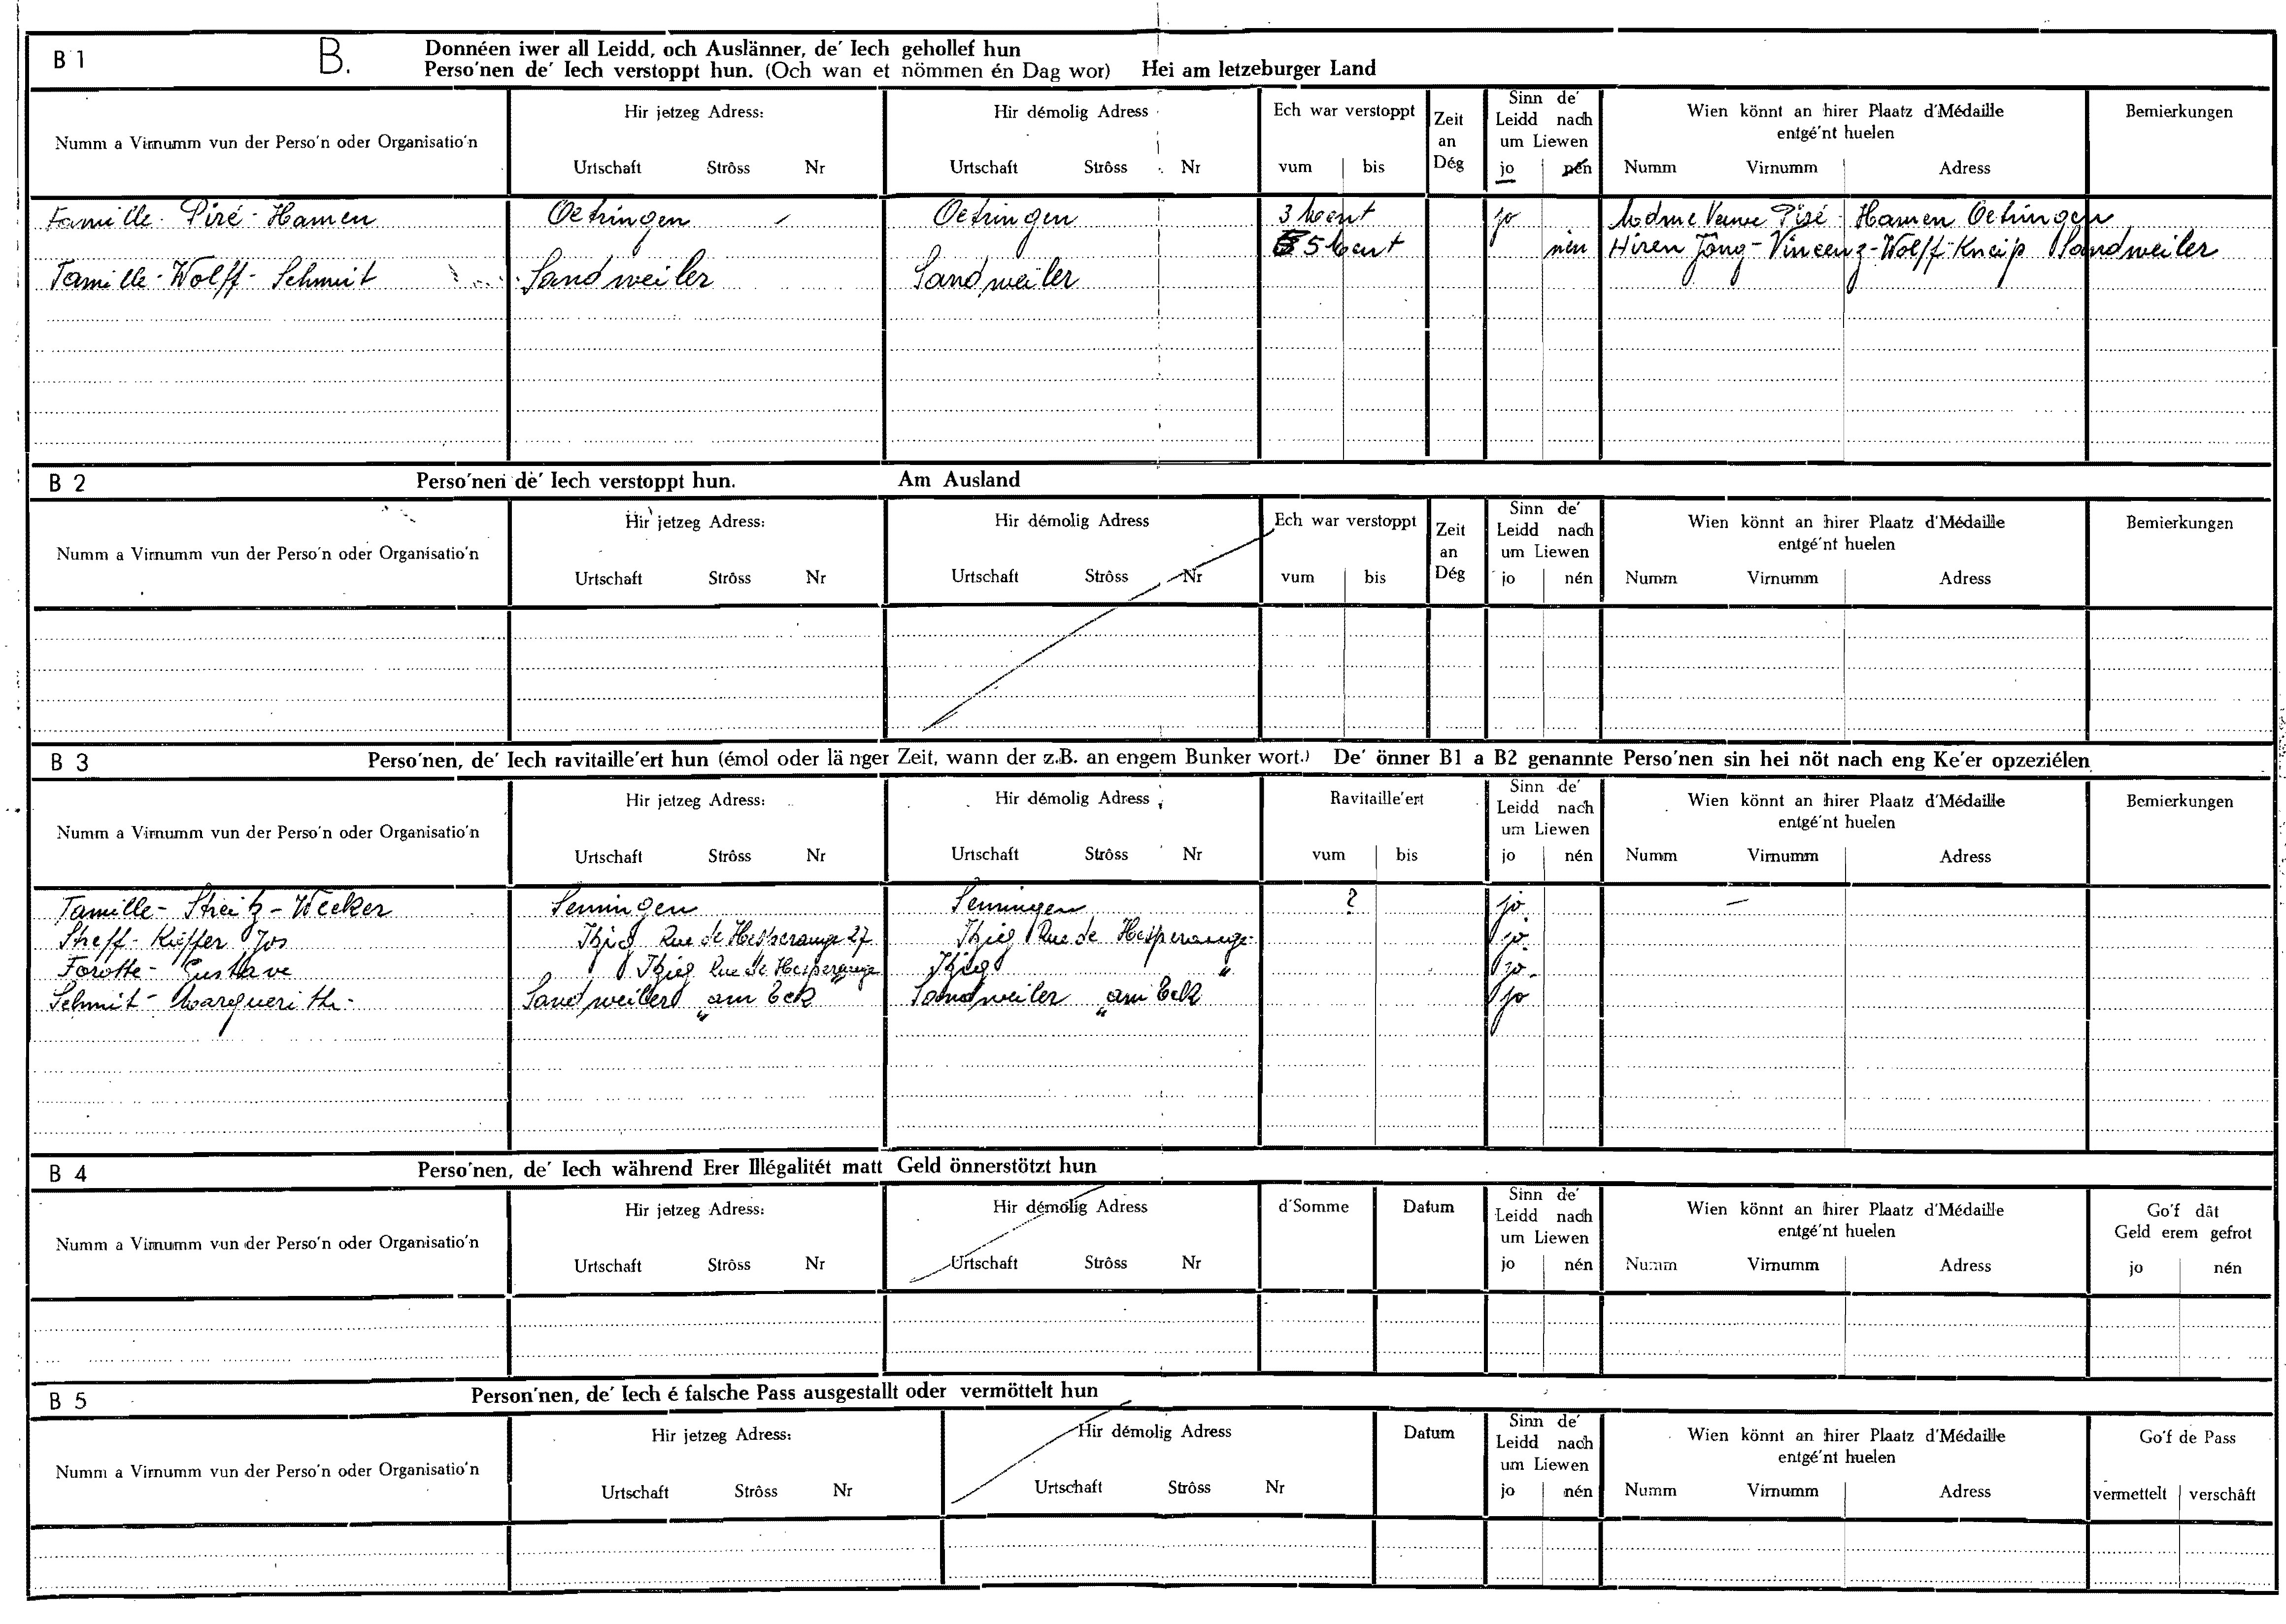 B 1 B. Donnéen iwer all Leidd, och Auslänner, de' Iech gehollef hun
Perso'nen de' Iech verstoppt hun. (Och wan et nömmen én Dag wor) Hei am letzeburger Land
Numm a Virnumm vun der Perso'n oder Organisatio'n
Hir jetzeg Adress:
Urtschaft Strôss Nr
Hir démolig Adress
Urtschaft Strôss Nr
Ech war verstoppt
vum bis
Zeit
an
Dég
Sinn de'
Leidd nach
um Liewen
jo nén
Wien könnt an hirer Plaatz d'Médaille
entgé'nt huelen
Numm Virnumm Adress
Bemierkungen
Famille - Piré - Hamen Oetringen Oetringen 3 jo Veuve Piré - Hamen Oetringen
5 nén Hiren Jông - Vincenz - Wolff - Kneip Sandweiler
Famille - Wolff - Schmit Sandweiler Sandweiler
B 2 Perso'nen de' Iech verstoppt hun. Am Ausland
Numm a Virnumm vun der Perso'n oder Organisatio'n
Hir jetzeg Adress:
Urtschaft Strôss Nr
Hir démolig Adress
Urtschaft Strôss Nr
Ech war verstoppt
vum bis
Zeit
an
Dég
Sinn de'
Leidd nach
um Liewen
jo nén
Wien könnt an hirer Plaatz d'Médaille
entgé'nt huelen
Numm Virnumm Adress
Bemierkungen
B 3 Perso'nen, de' Iech ravitaille'ert hun (émol oder länger Zeit, wann der z.B. an engem Bunker wort.) De' önner B1 a B2 genannte Perso'nen sin hei nöt nach eng Ke'er opzeziélen
Numm a Virnumm vun der Perso'n oder Organisatio'n
Hir jetzeg Adress:
Urtschaft Strôss Nr
Hir démolig Adress
Urtschaft Strôss Nr
Ravitaille'ert
vum bis
Sinn de'
Leidd nach
um Liewen
jo nén
Wien könnt an hirer Plaatz d'Médaille
entgé'nt huelen
Numm Virnumm Adress
Bemierkungen
Famille - Streitz - Wecker Senningen Senningen ? jo. —
Steff - Kieffer Jos Itzig Rue de Hesperange 27 Itzig Rue de Hesperange jo.
Farotte - Gustave Itzig Rue de Hesperange Itzig " jo.
Schmit - Marguerithe Sandweiler " am Eck Sandweiler " am Eck jo
B 4 Perso'nen, de' Iech während Erer Illégalitét matt Geld önnerstötzt hun
Numm a Virnumm vun der Perso'n oder Organisatio'n
Hir jetzeg Adress:
Urtschaft Strôss Nr
Hir démolig Adress
Urtschaft Strôss Nr
d'Somme
Datum
Sinn de'
Leidd nach
um Liewen
jo nén
Wien könnt an hirer Plaatz d'Médaille
entgé'nt huelen
Numm Virnumm Adress
Go'f dât
Geld erem gefrot
jo nén
B 5 Person'nen, de' Iech é falsche Pass ausgestallt oder vermöttelt hun
Numm a Virnumm vun der Perso'n oder Organisatio'n
Hir jetzeg Adress:
Urtschaft Strôss Nr
Hir démolig Adress
Urtschaft Strôss Nr
Datum
Sinn de'
Leidd nach
um Liewen
jo nén
Wien könnt an hirer Plaatz d'Médaille
entgé'nt huelen
Numm Virnumm Adress
Go'f de Pass
vermettelt verschâft